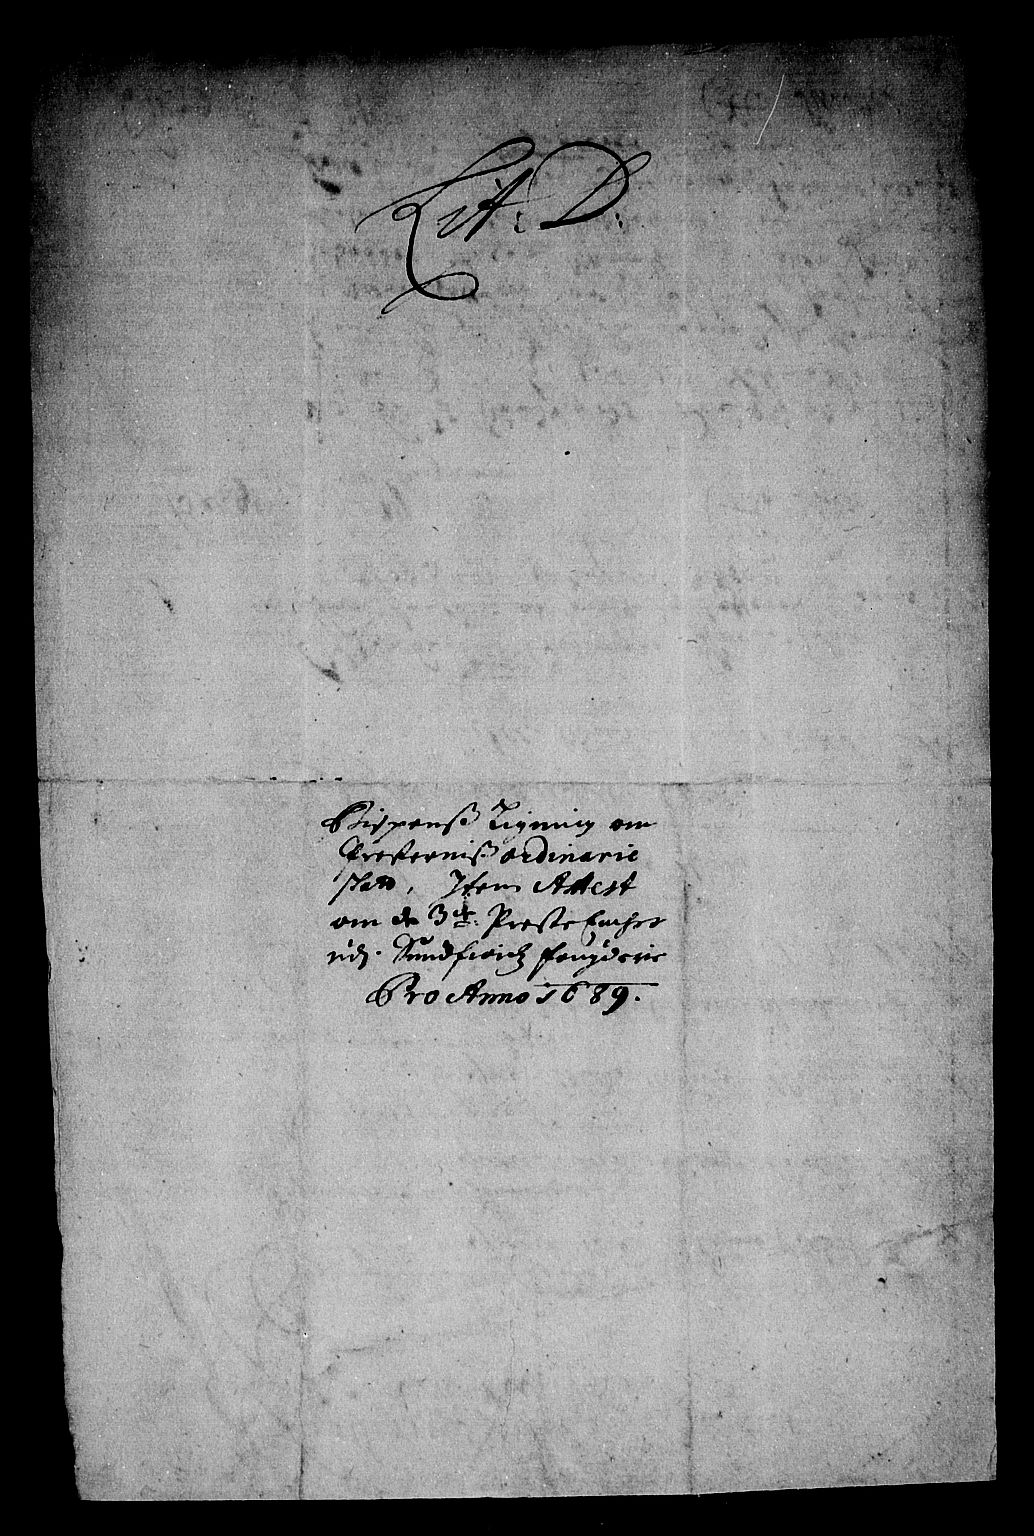 Lit: D:
Bispens Ligning om
Presternis ordinarie
skatt, Item Attest
om de 3de Preste Encher
udj Sundfiords fougderie
Pro Anno 1689.